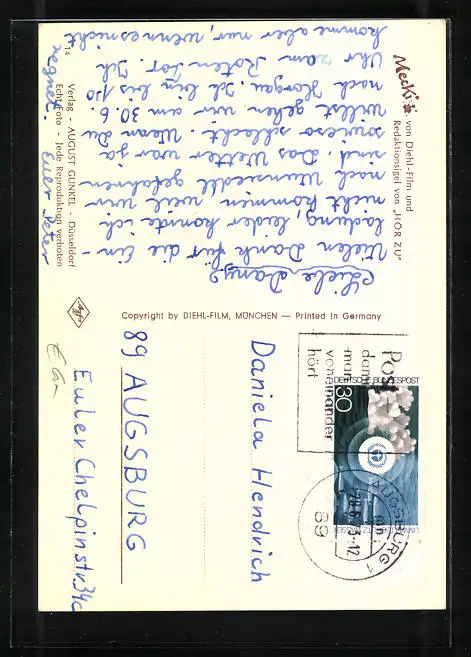 Mecki von Diehl-Film und
Redaktionsigel von „HÖR ZU"
Liebe Dany!
Vielen Dank für die Ein-
ladung, leider konnte ich
nicht kommen, weil wir
nach Wunsiedl gefahren
sind. Das Wetter war ja
sowieso schlecht. Wenn Du
willst gehen wir am 30.6.
nach Horgau. Ich bin bis 1.30
Uhr zum Roten Tor. Ich
komme aber nur, wenn es nicht
regnet. Euer Peter
14
Verlag AUGUST GUNKEL - Düsseldorf
Echt Foto - Jede Reproduktion verboten
Agfa
Copyright by DIEHL-FILM, MÜNCHEN — Printed in Germany
Post
damit
man
voneinander
hört
DEUTSCHE BUNDESPOST
30
AUGSBURG 1
28.6.73-12
89
Daniela Hendrich
89 AUGSBURG
Euler Chelpinstr. 34c